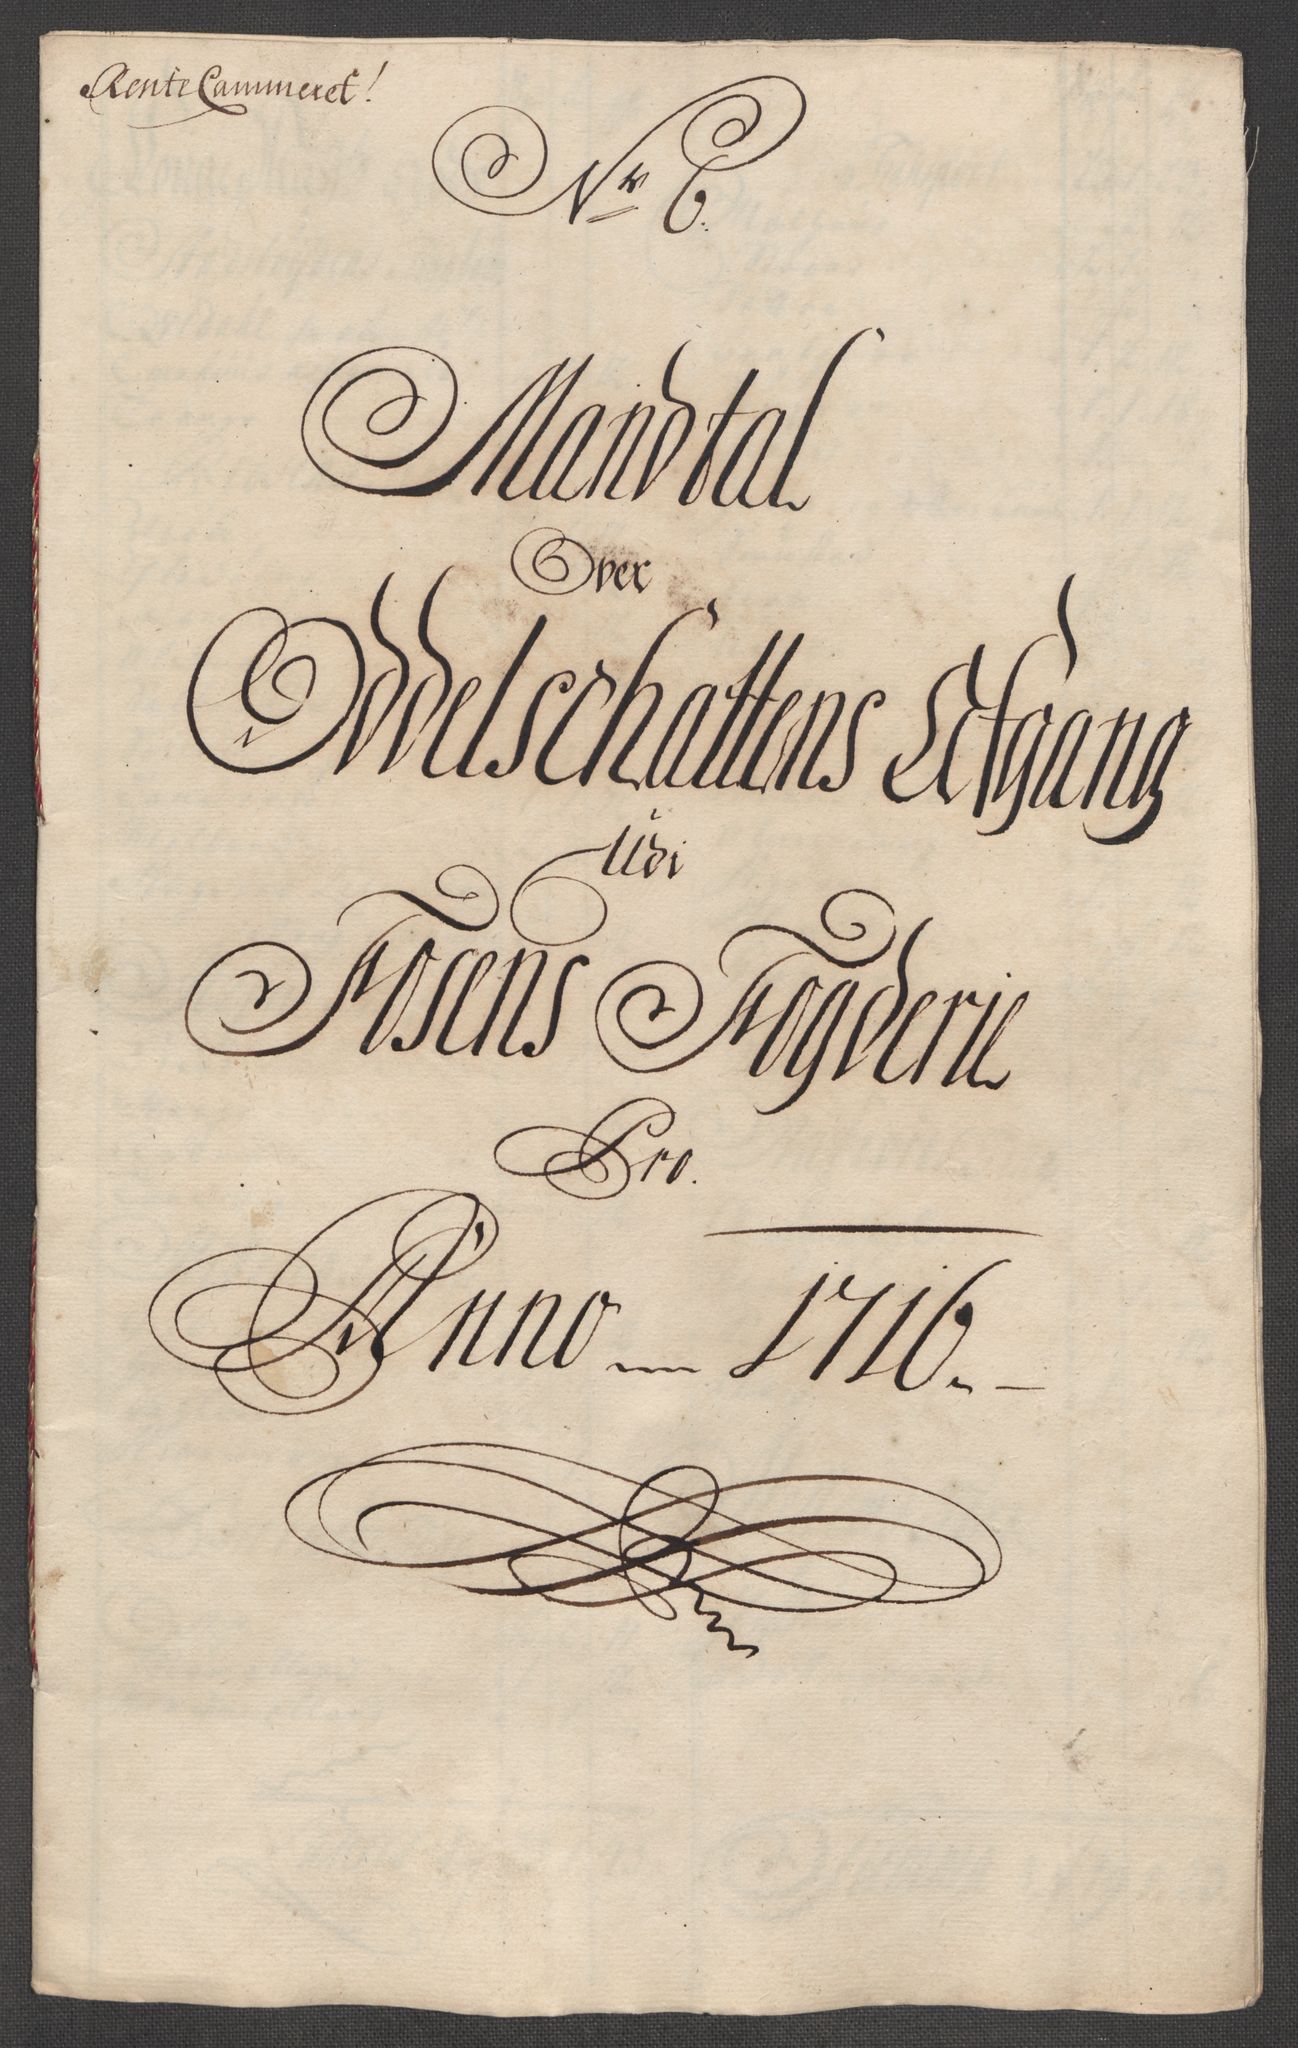 Rente Cammeret!
No 6.
Mandtal
Over
Oddelschattens Afgang
Udi
Fosens Fogderie
Pro.
Anno 1716.